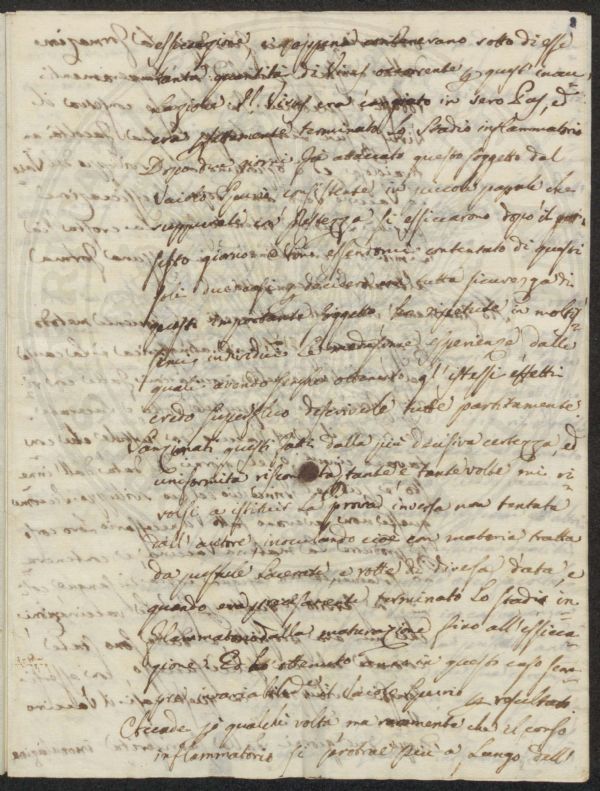 essiccazione, ed appena contenevano sotto di essi
tanta quantità di Virus occorrente per quest' inocu
lazione. Il Virus era cangiato in sero Pus, ed
era perfettamente terminato lo Stadio inflammatorio
Dopo dieci giorni fu attaccato questo soggetto dal
Vaiolo Spurio consistente in piccole papule che
suppurate con prestezza si essiccarono dopo il
sesto giorno. Non essendomi contentato di questi
soli due casi per decidere con tutta sicurezza di
questo importante soggetto ho ripetute in moltis
simi individui le medesime esperienze dalle
quali avendo sempre ottenuto gl' istessi effetti
credo superfluo descriverle tutte partitamente.
Consumati questi fatti dalla più decisiva certezza, ed
uniformità tante e tante volte mi ri
volsi a istituir la prova inversa non tentata
dall' autore, inoculando cioè con materia tratta
da pustule lacerate e rotte di diversa data, e
quando era perfettamente terminato lo Stadio in
flammatorio dalla maturazione sino all' essicca
zione. Ed ho ottenuto anche in questo caso sem
pre invariabile il Vaiolo Spurio per resultato.
Accade sì qualche volta ma raramente che il corso
inflammatorio si protrae più a lungo dell'